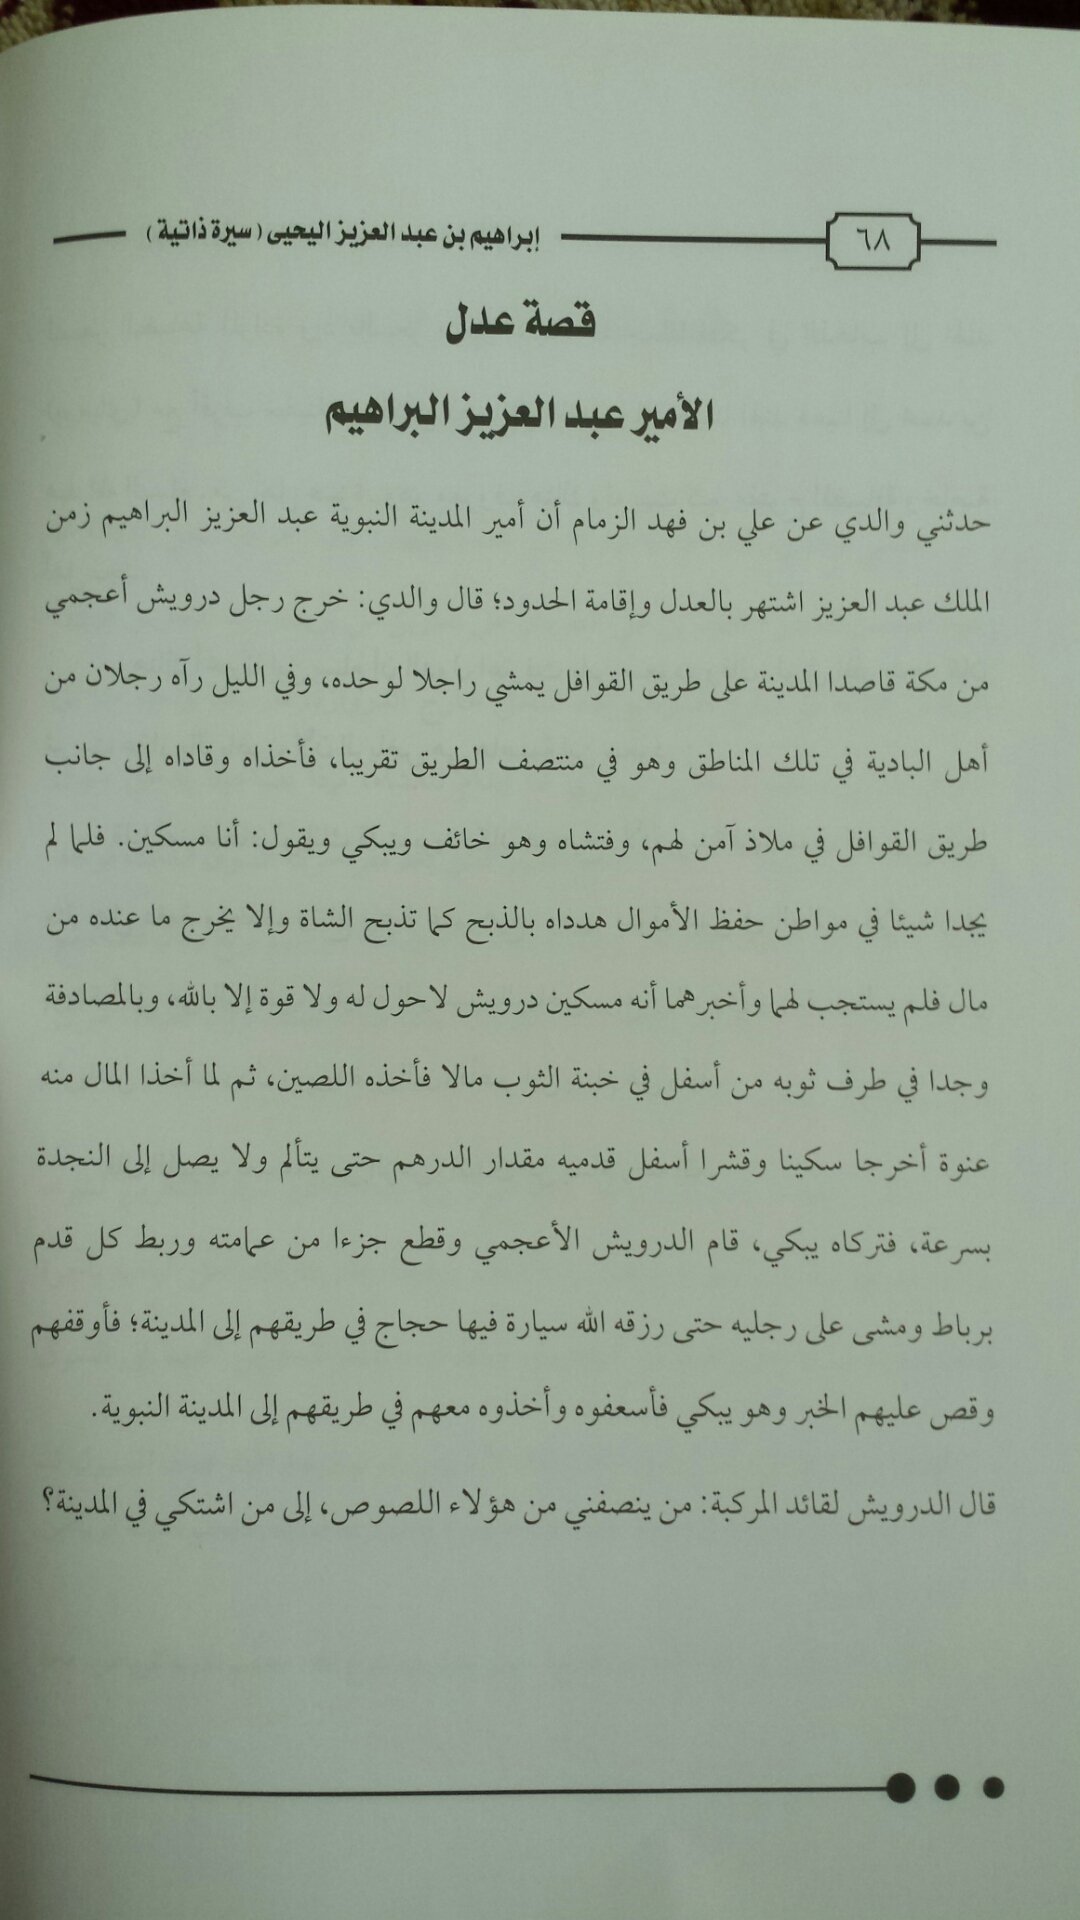 ٦٨
إبراهيم بن عبد العزيز اليحيى (سيرة ذاتية)
قصة عدل
الأمير عبد العزيز البراهيم
حدثني والدي عن علي بن فهد الزمام أن أمير المدينة النبوية عبد العزيز البراهيم زمن
الملك عبد العزيز اشتهر بالعدل وإقامة الحدود؛ قال والدي: خرج رجل درويش أعجمي
من مكة قاصدا المدينة على طريق القوافل يمشي راجلا لوحده، وفي الليل رآه رجلان من
أهل البادية في تلك المناطق وهو في منتصف الطريق تقريبا، فأخذاه وقاداه إلى جانب
طريق القوافل في ملاذ آمن لهم، وفتشاه وهو خائف ويبكي ويقول: أنا مسكين. فلما لم
يجدا شيئا في مواطن حفظ الأموال هدداه بالذبح كما تذبح الشاة وإلا يخرج ما عنده من
مال فلم يستجب لهما وأخبرهما أنه مسكين درويش لاحول له ولا قوة إلا بالله، وبالمصادفة
وجدا في طرف ثوبه من أسفل في خبنة الثوب مالا فأخذه اللصين، ثم لما أخذا المال منه
عنوة أخرجا سكينا وقشرا أسفل قدميه مقدار الدرهم حتى يتألم ولا يصل إلى النجدة
بسرعة، فتركاه يبكي، قام الدرويش الأعجمي وقطع جزءا من عمامته وربط كل قدم
برباط ومشى على رجليه حتى رزقه الله سيارة فيها حجاج في طريقهم إلى المدينة؛ فأوقفهم
وقص عليهم الخبر وهو يبكي فأسعفوه وأخذوه معهم في طريقهم إلى المدينة النبوية.
قال الدرويش لقائد المركبة: من ينصفني من هؤلاء اللصوص، إلى من اشتكي في المدينة؟